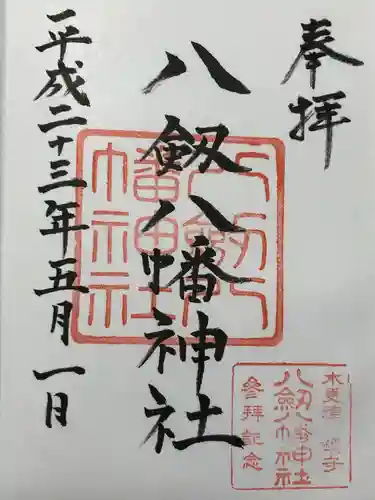 奉拝
八劔八幡神社
平成二十三年五月一日
八劔八幡神社
木更津
八劔八幡神社
参拝記念